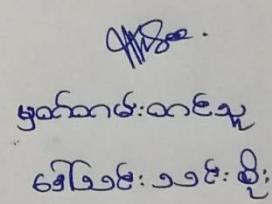 မှတ်တမ်းတင်သူ
ဒေါ်သင်းသင်းစိုး